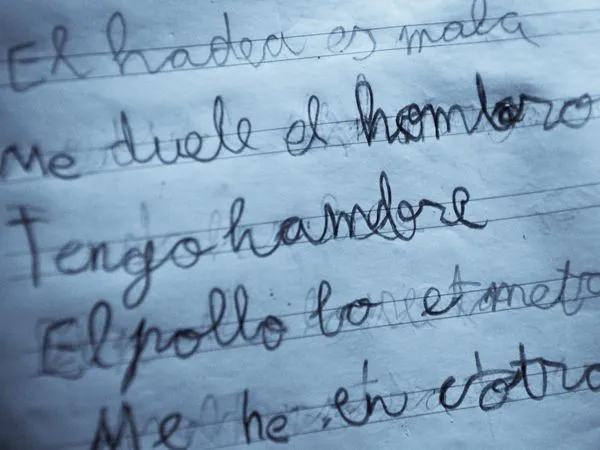 El hadea es mala
Me duele el hombro
Tengo hambre
El pollo lo e
Me he en